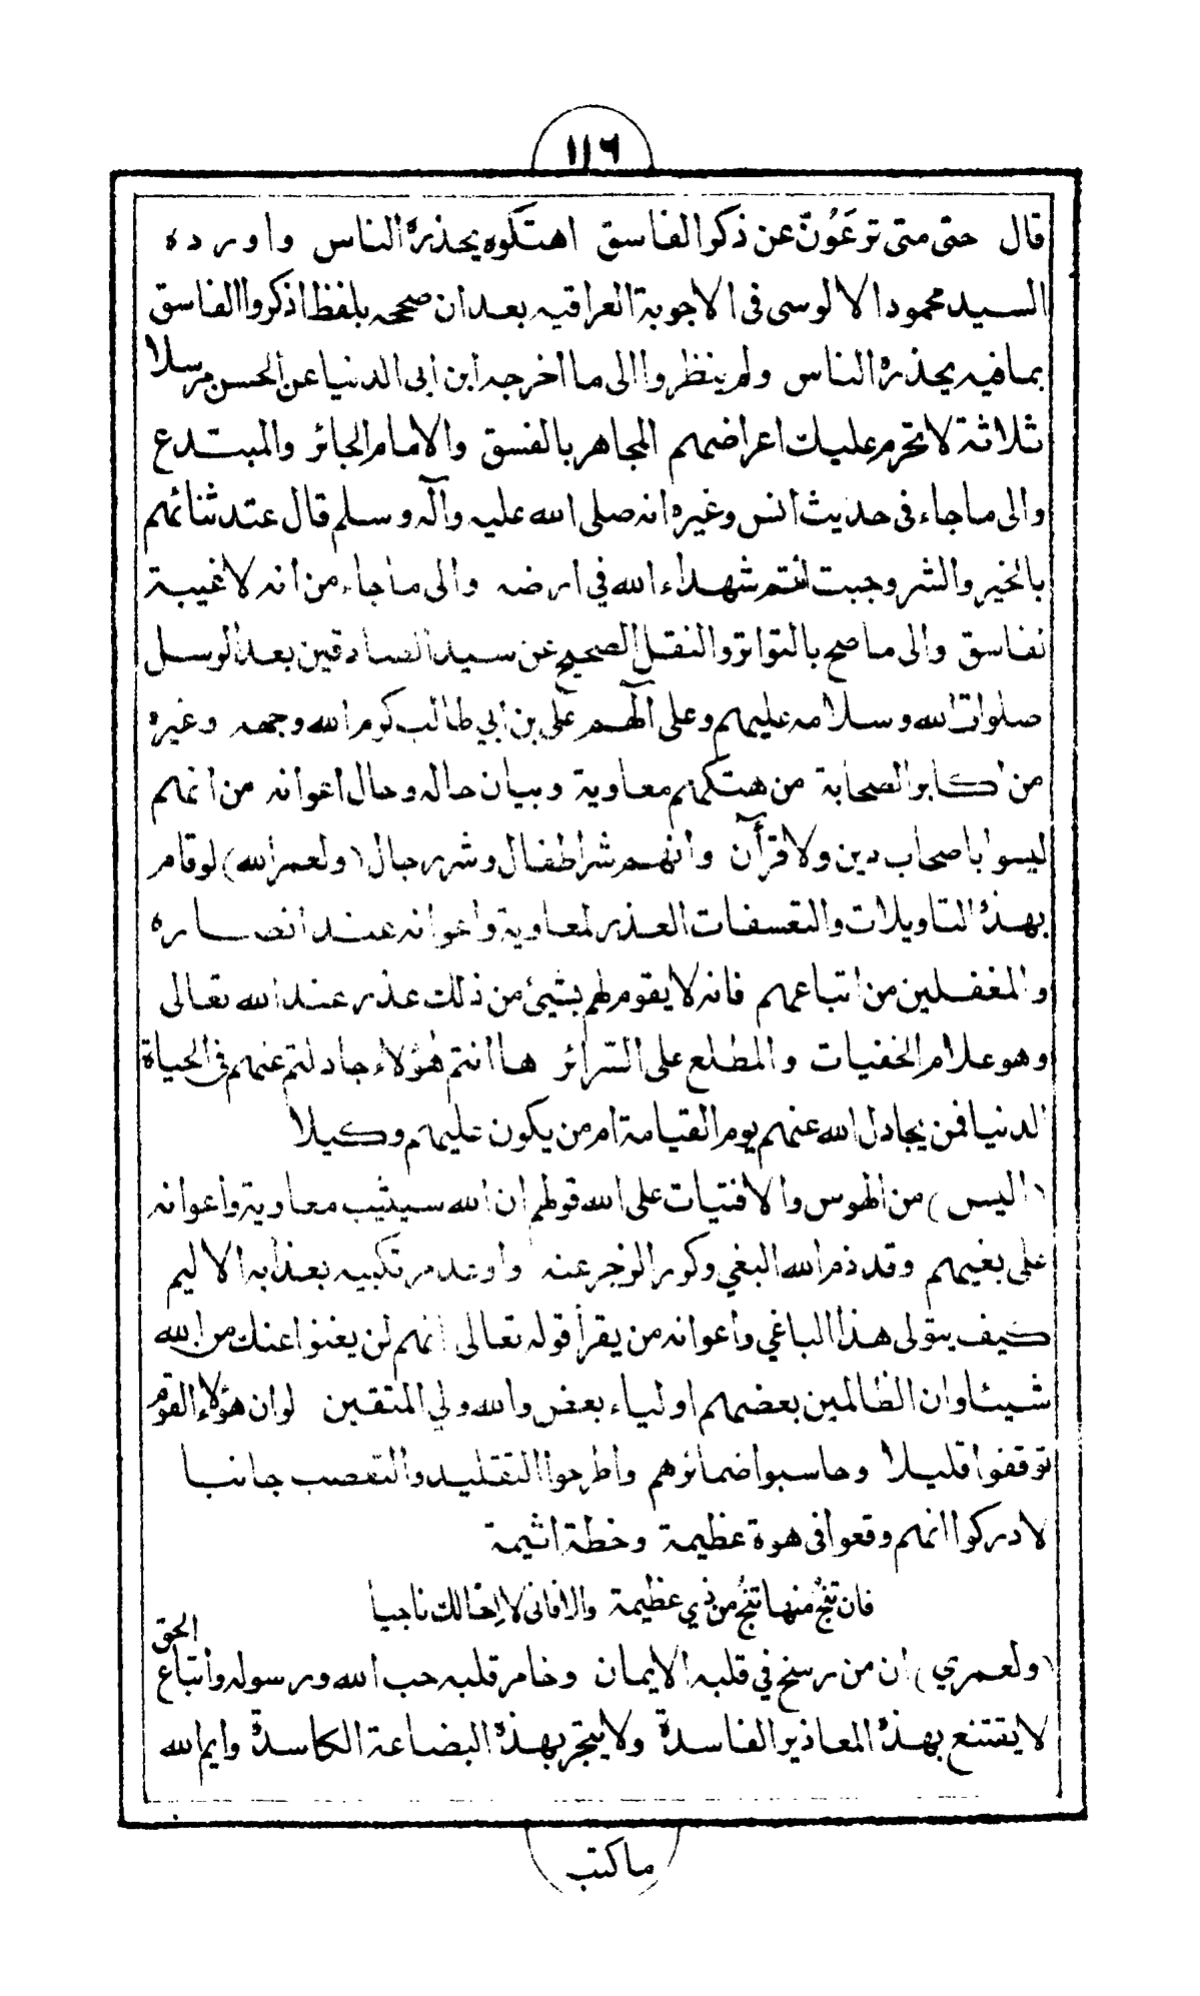 ١١٦
قال حتى متى ترعَوُنّ عن ذكر الفاسق اهتكوه يحذره الناس واورده
السيد محمود الالوسى فى الاجوبة العراقيه بعد ان صححه بلفظ اذكروا الفاسق
بما فيه يحذره الناس ولم ينظروا الى ما اخرجه ابن ابى الدنيا عن الحسن مرسلا
ثلاثة لا تحرم عليك اعراضهم المجاهر بالفسق والامام الجائر والمبتدع
والى ما جاء فى حديث انس وغيره انه صلى الله عليه وآله وسلم قال عند ثنائهم
بالخير والشر وجبت انتم شهداء الله في ارضه والى ما جاء من انه لا غيبة
لفاسق والى ما صح بالتواتر والنقل الصحيح عن سيد الصادقين بعد الرسل
صلوات الله وسلامه عليهم وعلى آلهم على بن ابي طالب كرم الله وجهه وغيره
من اكابر الصحابة من هتكهم معاوية وبيان حاله وحال اعوانه من انهم
ليسوا باصحاب دين ولا قرأن وانهم شر اطفال وشر رجال (ولعمر الله) لو قام
بهذه التاويلات والتعسفات العذر لمعاوية واعوانه عند انصاره
والمغفلين من اتباعهم فانه لا يقوم لهم بشيئ من ذلك عذر عند الله تعالى
وهو علام الخفيات والمطلع على السّرائر ها انتم هٰؤلاء جادلتم عنهم فى الحياة
الدنيا فمن يجادل الله عنهم يوم القيامة ام من يكون عليهم وكيلا
(اليس) من الهوس والافتيات على الله قولهم ان الله سيثيب معاوية واعوانه
على بغيهم وقد ذم الله البغي وكرر الزجر عنه واوعد مرتكبيه بعذابه الاليم
كيف يتولى هذا الباغي واعوانه من يقرأ قوله تعالى انهم لن يغنوا عنك من الله
شيئا وان الظالمين بعضهم اولياء بعض والله ولي المتقين لو ان هؤلاء القوم
توقفوا قليلا وحاسبوا ضمائرهم واطرحوا التقليد والتعصب جانبا
لادركوا انهم وقعوا فى هوة عظيمة وخطة اثيمة
فان تنجُ منها تنجُ من ذي عظيمة والا فانى لا اِخالك ناجيا
(ولعمري) ان من رسخ في قلبه الايمان وخامر قلبه حب الله ورسوله واتباع الحق
لا يقتنع بهذه المعاذير الفاسدة ولا يتجر بهذه البضاعة الكاسدة وايم الله
ما كتب